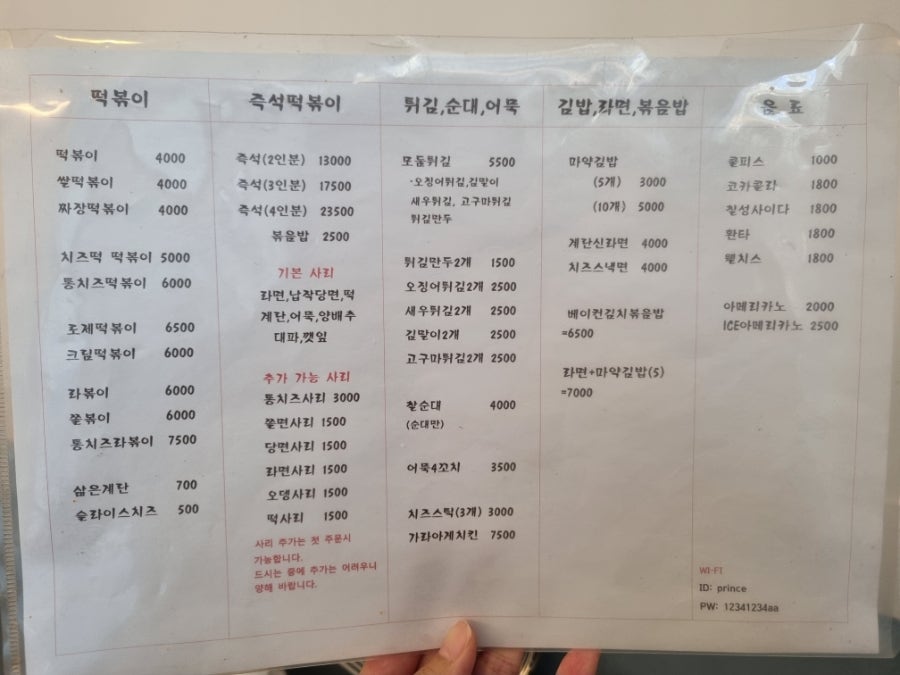 떡볶이
떡볶이 4000
쌀떡볶이 4000
짜장떡볶이 4000
치즈떡 떡볶이 5000
통치즈떡볶이 6000
로제떡볶이 6500
크림떡볶이 6000
라볶이 6000
쫄볶이 6000
통치즈라볶이 7500
삶은계란 700
슬라이스치즈 500
즉석떡볶이
즉석(2인분) 13000
즉석(3인분) 17500
즉석(4인분) 23500
볶음밥 2500
기본 사리
라면,납작당면,떡
계란,어묵,양배추
대파,깻잎
추가 가능 사리
통치즈사리 3000
쫄면사리 1500
당면사리 1500
라면사리 1500
오뎅사리 1500
떡사리 1500
사리 추가는 첫 주문시
가능합니다.
드시는 중에 추가는 어려우니
양해 바랍니다.
튀김,순대,어묵
모둠튀김 5500
·오징어튀김,김말이
새우튀김, 고구마튀김
튀김만두
튀김만두2개 1500
오징어튀김2개 2500
새우튀김2개 2500
김말이2개 2500
고구마튀김2개 2500
찰순대 4000
(순대만)
어묵4꼬치 3500
치즈스틱(3개) 3000
가라아게치킨 7500
김밥,라면,볶음밥
마약김밥
(5개) 3000
(10개) 5000
계란신라면 4000
치즈스낵면 4000
베이컨김치볶음밥
=6500
라면+마약김밥(5)
=7000
음 료
쿨피스 1000
코카콜라 1800
칠성사이다 1800
환타 1800
웰치스 1800
아메리카노 2000
ICE아메리카노 2500
WI-FI
ID: prince
PW: 12341234aa